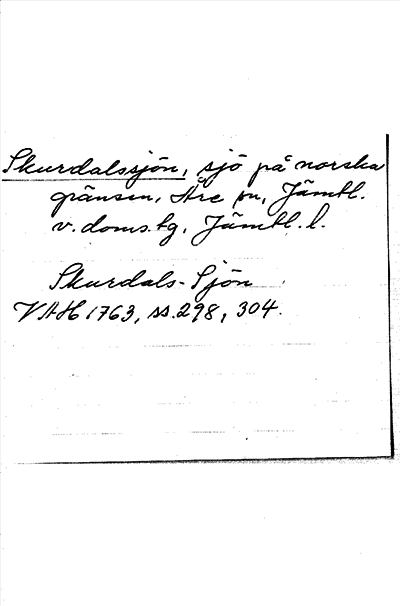 Skurdalssjön, sjö på norska
gränsen, Åre sn, Jämtl.
v. doms.tg, Jämtl. l.
Skurdals-Sjön
VAH 1763, ss. 298, 304.